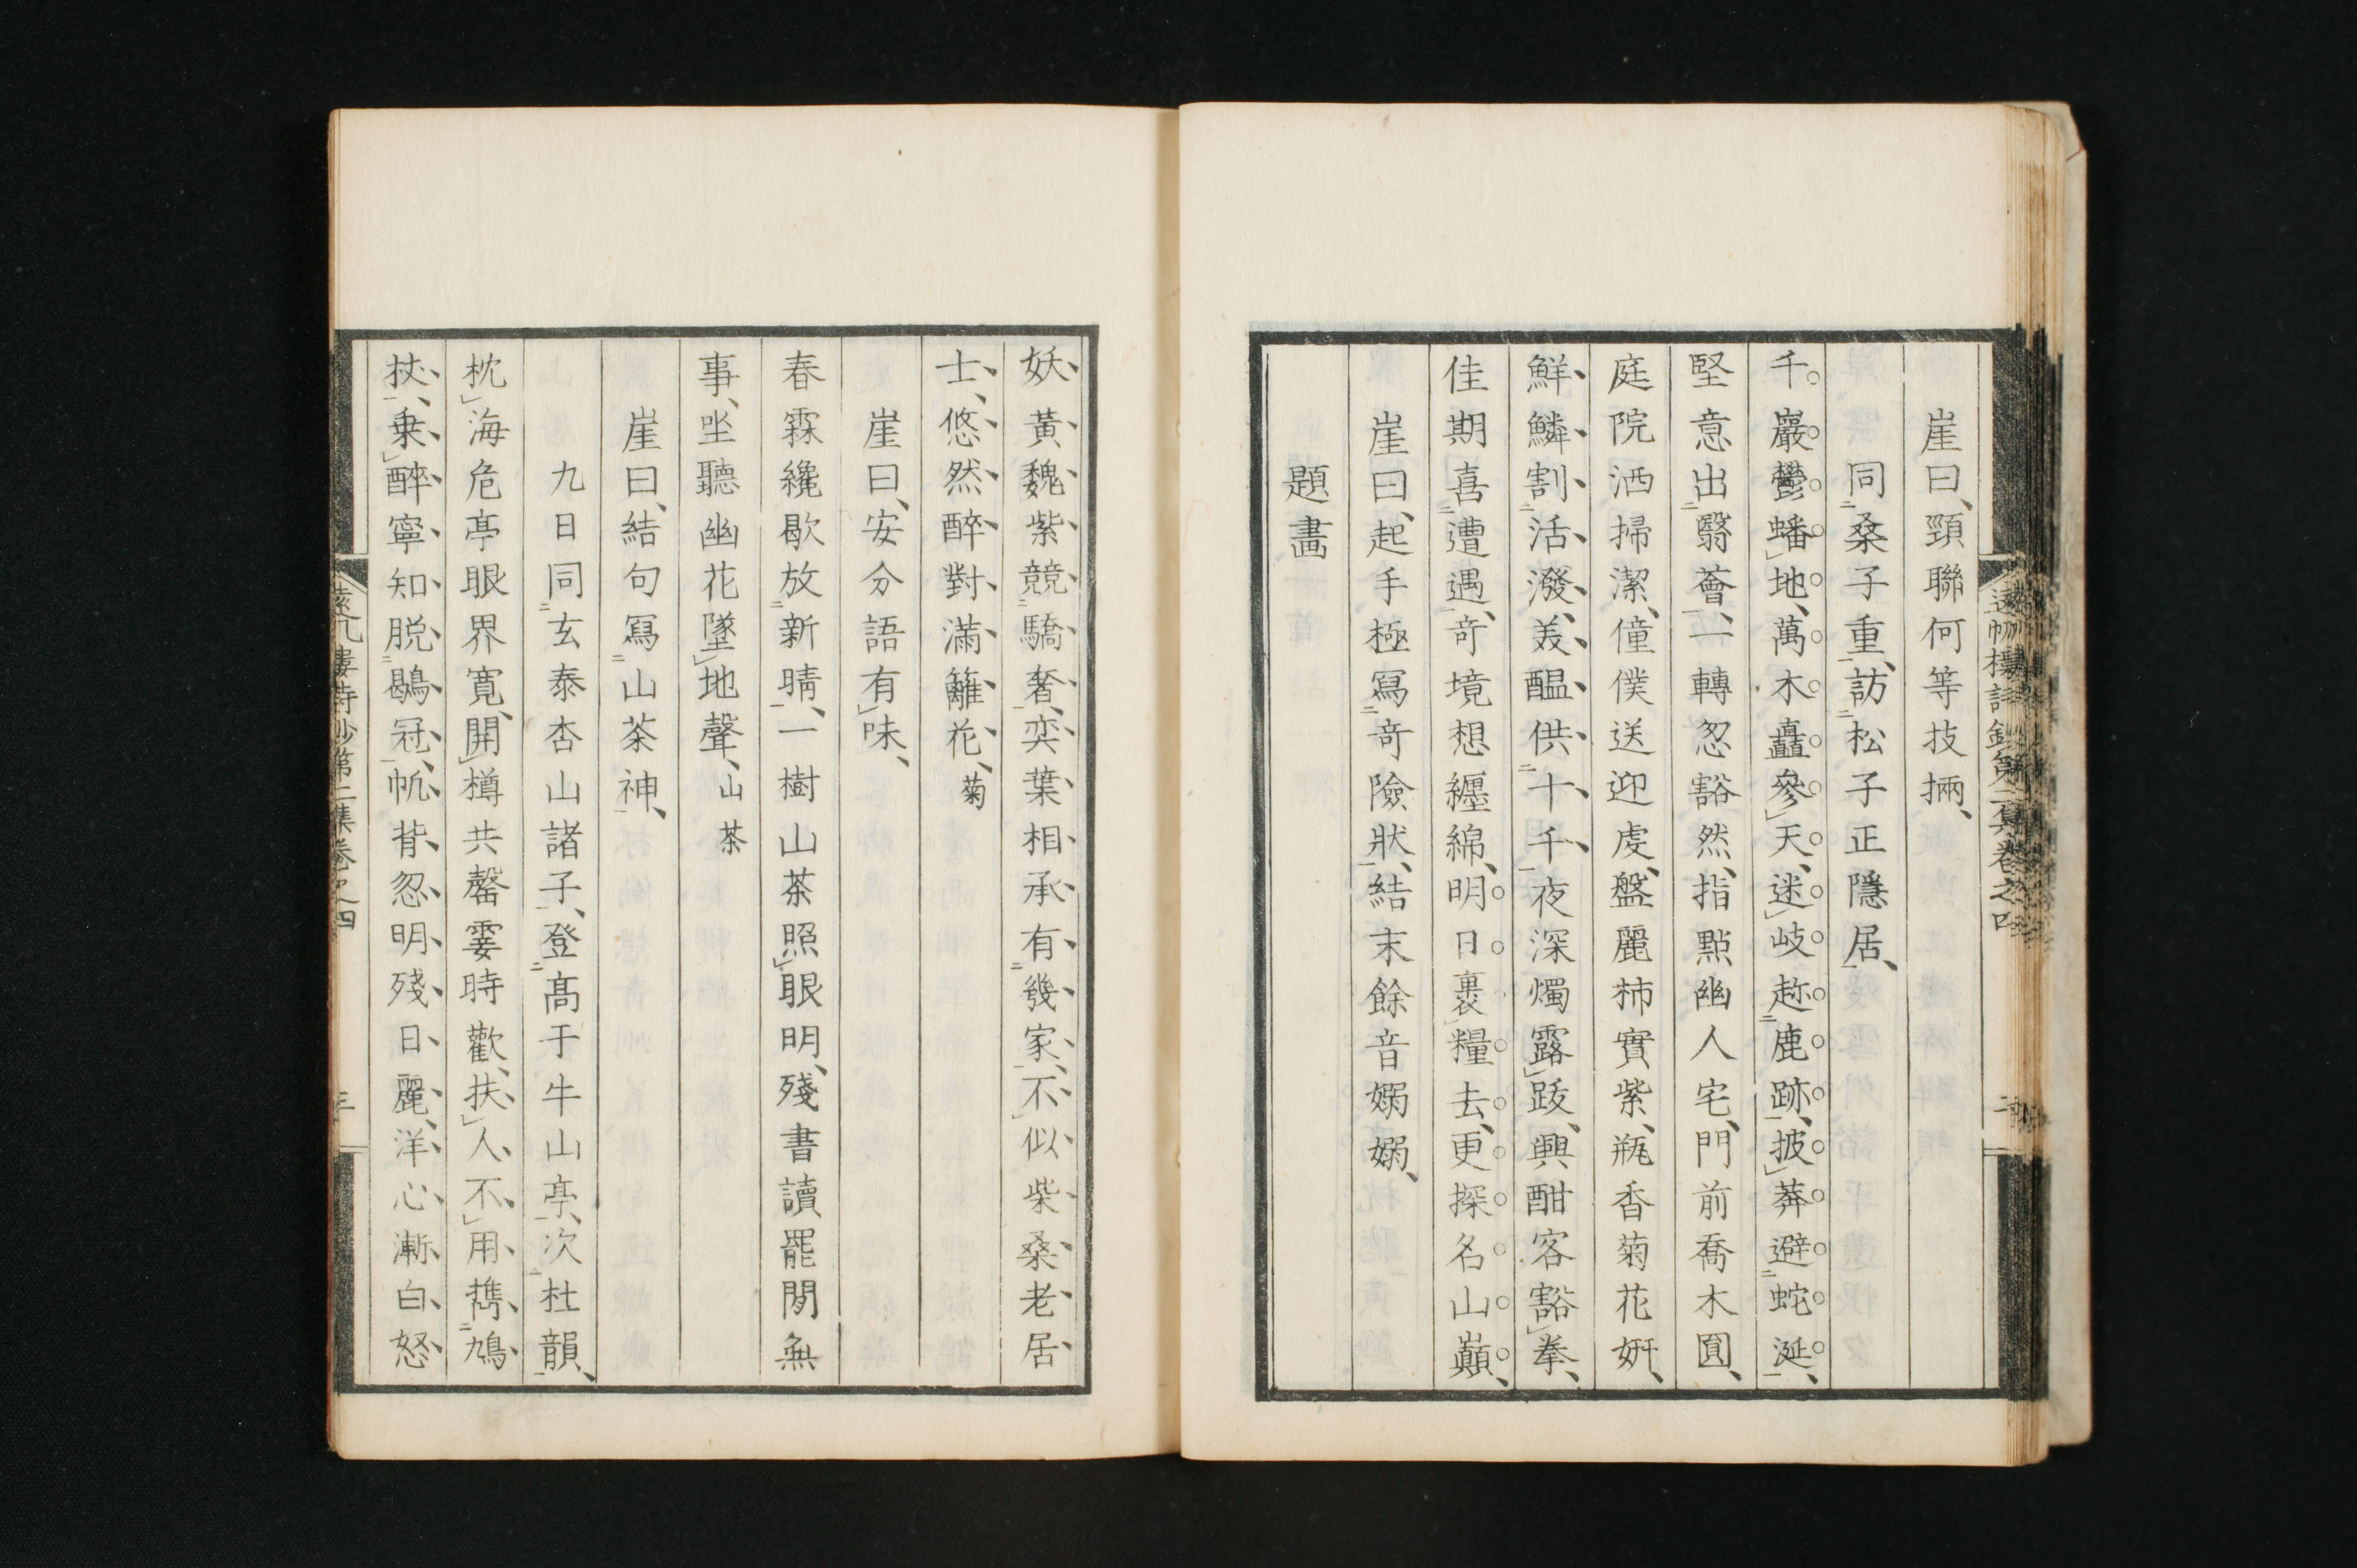 崖曰、頸聯何等技倆、
同桑子重、訪松子正隱居、
千巖鬱蟠地、萬木矗參天、迷岐趂鹿跡、披莽避蛇涎、
堅意出翳薈、一轉忽豁然、指點幽人宅、門前喬木圓、
庭院洒掃潔、僮僕送迎虔、盤麗柿實紫、瓶香菊花妍、
鮮鱗割活潑、美醞供十千、夜深燭露跋、興酣客豁拳、
佳期喜遭遇、奇境想纏綿、明日裹糧去、更探名山巔、
崖曰、起手極寫奇險狀、結末餘音嫋嫋、
題畵
妖黃魏紫競驕奢、奕葉相承有幾家、不似柴桑老居
士、悠然醉對滿籬花、菊
崖曰、安分語有味、
春霖纔歇放新晴、一樹山茶照眼明、殘書讀罷閒無
事、坐聽幽花墜地聲、山茶
崖曰、結句寫山茶神、
九日同玄泰杏山諸子、登髙于牛山亭、次杜韻、
枕海危亭眼界寬、開樽共罄霎時歡、扶人不用携鳩
杖、乗醉寧知脱鶡冠、帆背忽明殘日麗、洋心漸白怒